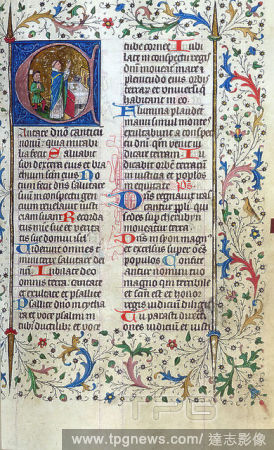 Cantate dno cantici
nouu: quia mirabi
lia fecit Saluauit
sibi dextera eius et bra
chium sanctum eius No
tum fecit dns salutare
suum in conspectu gen
cium reuelauit iusti
ciam suam Recorda
tus
sue et verita
tis sue domui isrl
Viderunt omnes
terre salutare
nri Iubilate deo
omnis terra: canta
te et exultate et psallite
Psallite dno in cytha
ra et voce psalmi in
tubis ductilibus et voce
tube cornee Iubi
late in conspectu regis
dni moueatur mare et
plenitudo eius orbis
terrar et vniuersi qui
habitant in eo
Flumina plaudet
manu simul montes
exultabunt a conspec
tu dni
iudicare terram Iu
dicabit orbe terrar in
iusticia et populos
in equitate
Dns regnauit
sedes super cherubyn
moueatur terra
Dns in syon magn
et excelsus super oes
populos Confite
antur nomini tuo
magno qm terribile
et sanctum est et honor
regis iudicium diligit
Tu parasti directi
ones iudicium et iusti
TPG
www.tpgnews.com/達志影像